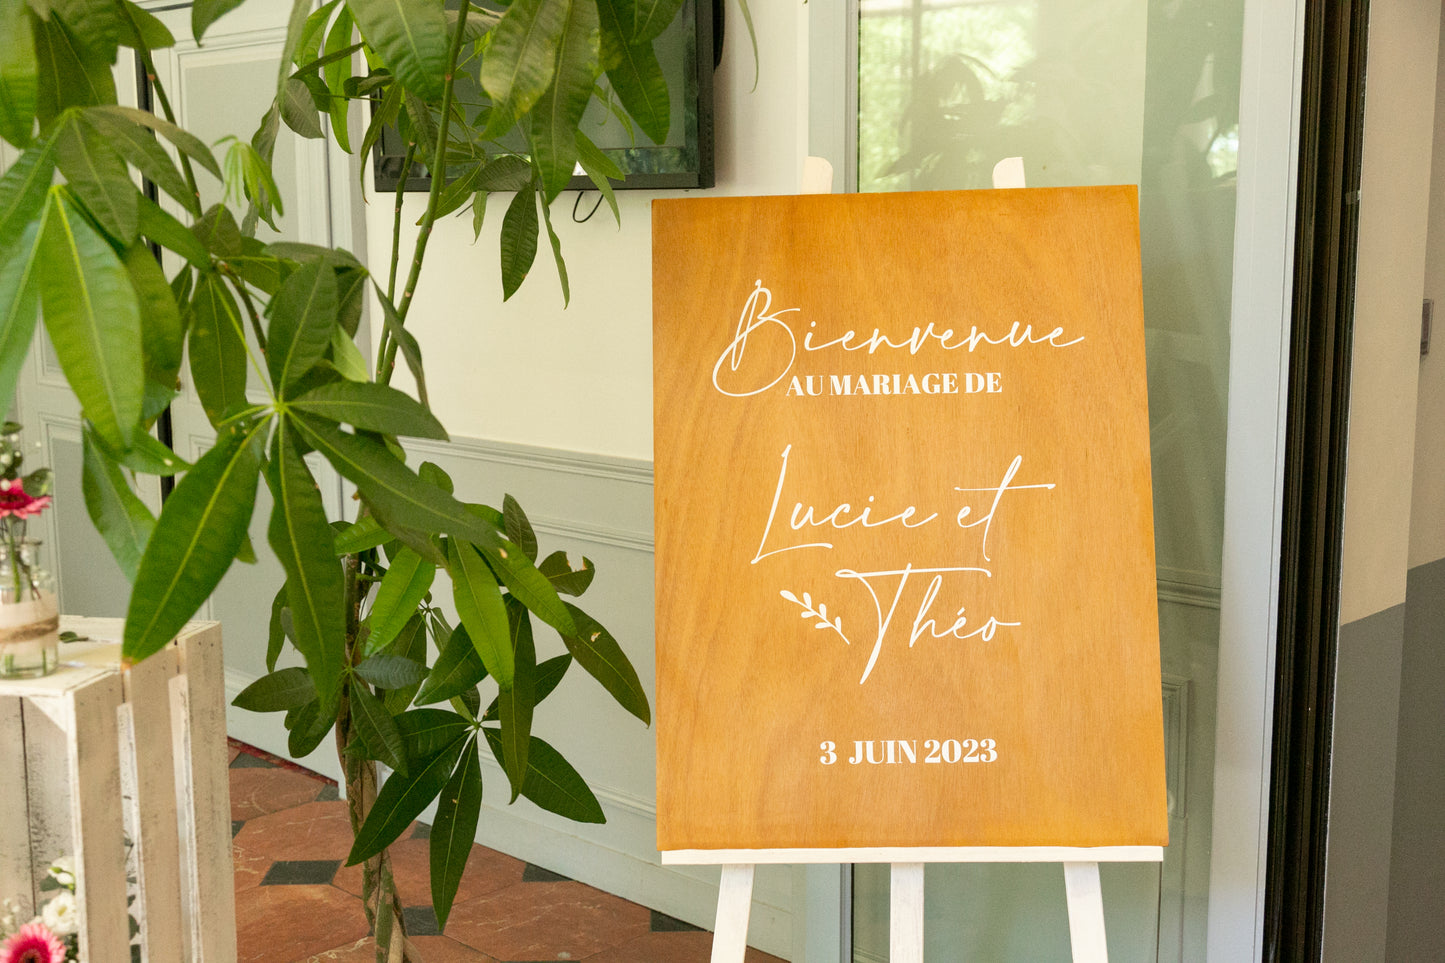 Bienvenue
AU MARIAGE DE
Lucie et
Théo
3 JUIN 2023